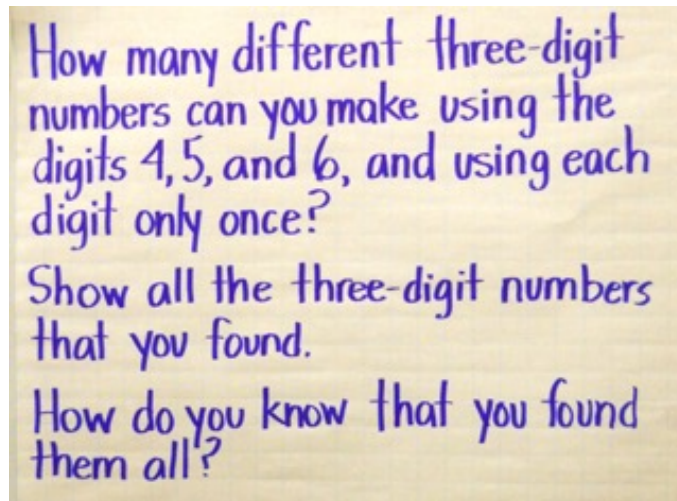 How many different three-digit
numbers can you make using the
digits 4, 5, and 6, and using each
digit only once?
Show all the three-digit numbers
that you found.
How do you know that you found
them all?